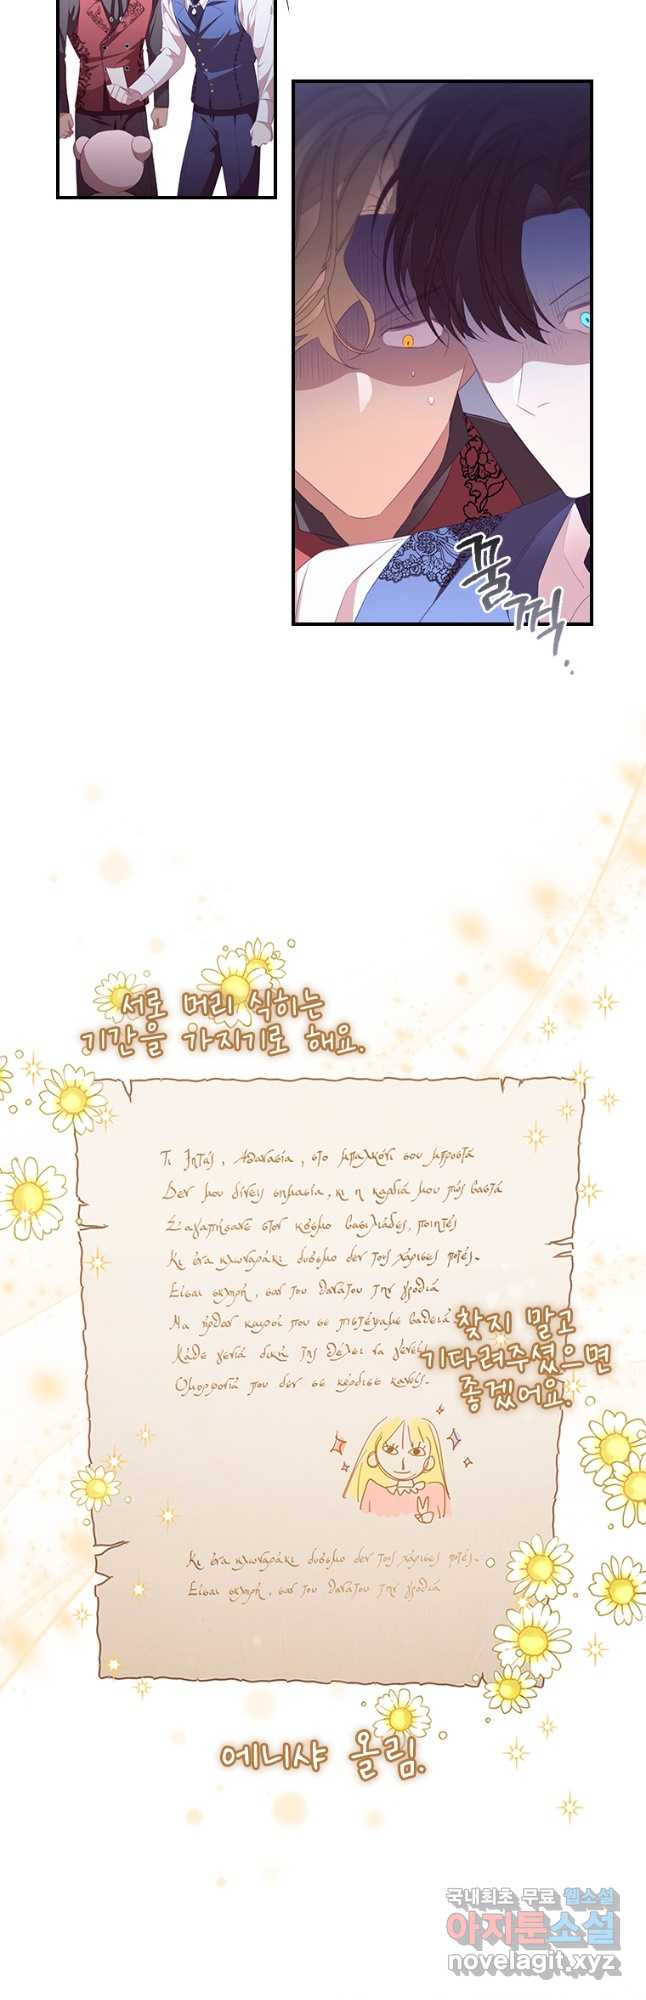 꿀꺽.
서로 머리 식히는
기간을 가지기로 해요.
Τι ζητάς, Αθανασία, στο μπαλκόνι σου μπροστά
Δεν μου δίνεις σημασία, κι η καρδιά μου πώς βαστά
Σ'αγαπήσανε στον κόσμο βασιλιάδες, ποιητές
Κι ένα κλωναράκι δυόσμο δεν τους χάρισες ποτές.
Είσαι σκληρή, σαν του θανάτου την γροθιά
Μα ήρθαν καιροί που σε πιστέψαμε βαθειά
Κάθε γενιά δική της θέλει να γένεις
Ομορφονιά που δεν σε κέρδισε κανείς.
찾지 말고
기다려주셨으면
좋겠어요.
Κι ένα κλωναράκι δυόσμο δεν τους χάρισες ποτές.
Είσαι σκληρή, σαν του θανάτου την γροθιά
에니샤 올림.
국내최초 무료 웹소설
아지툰소설
novelagit.xyz